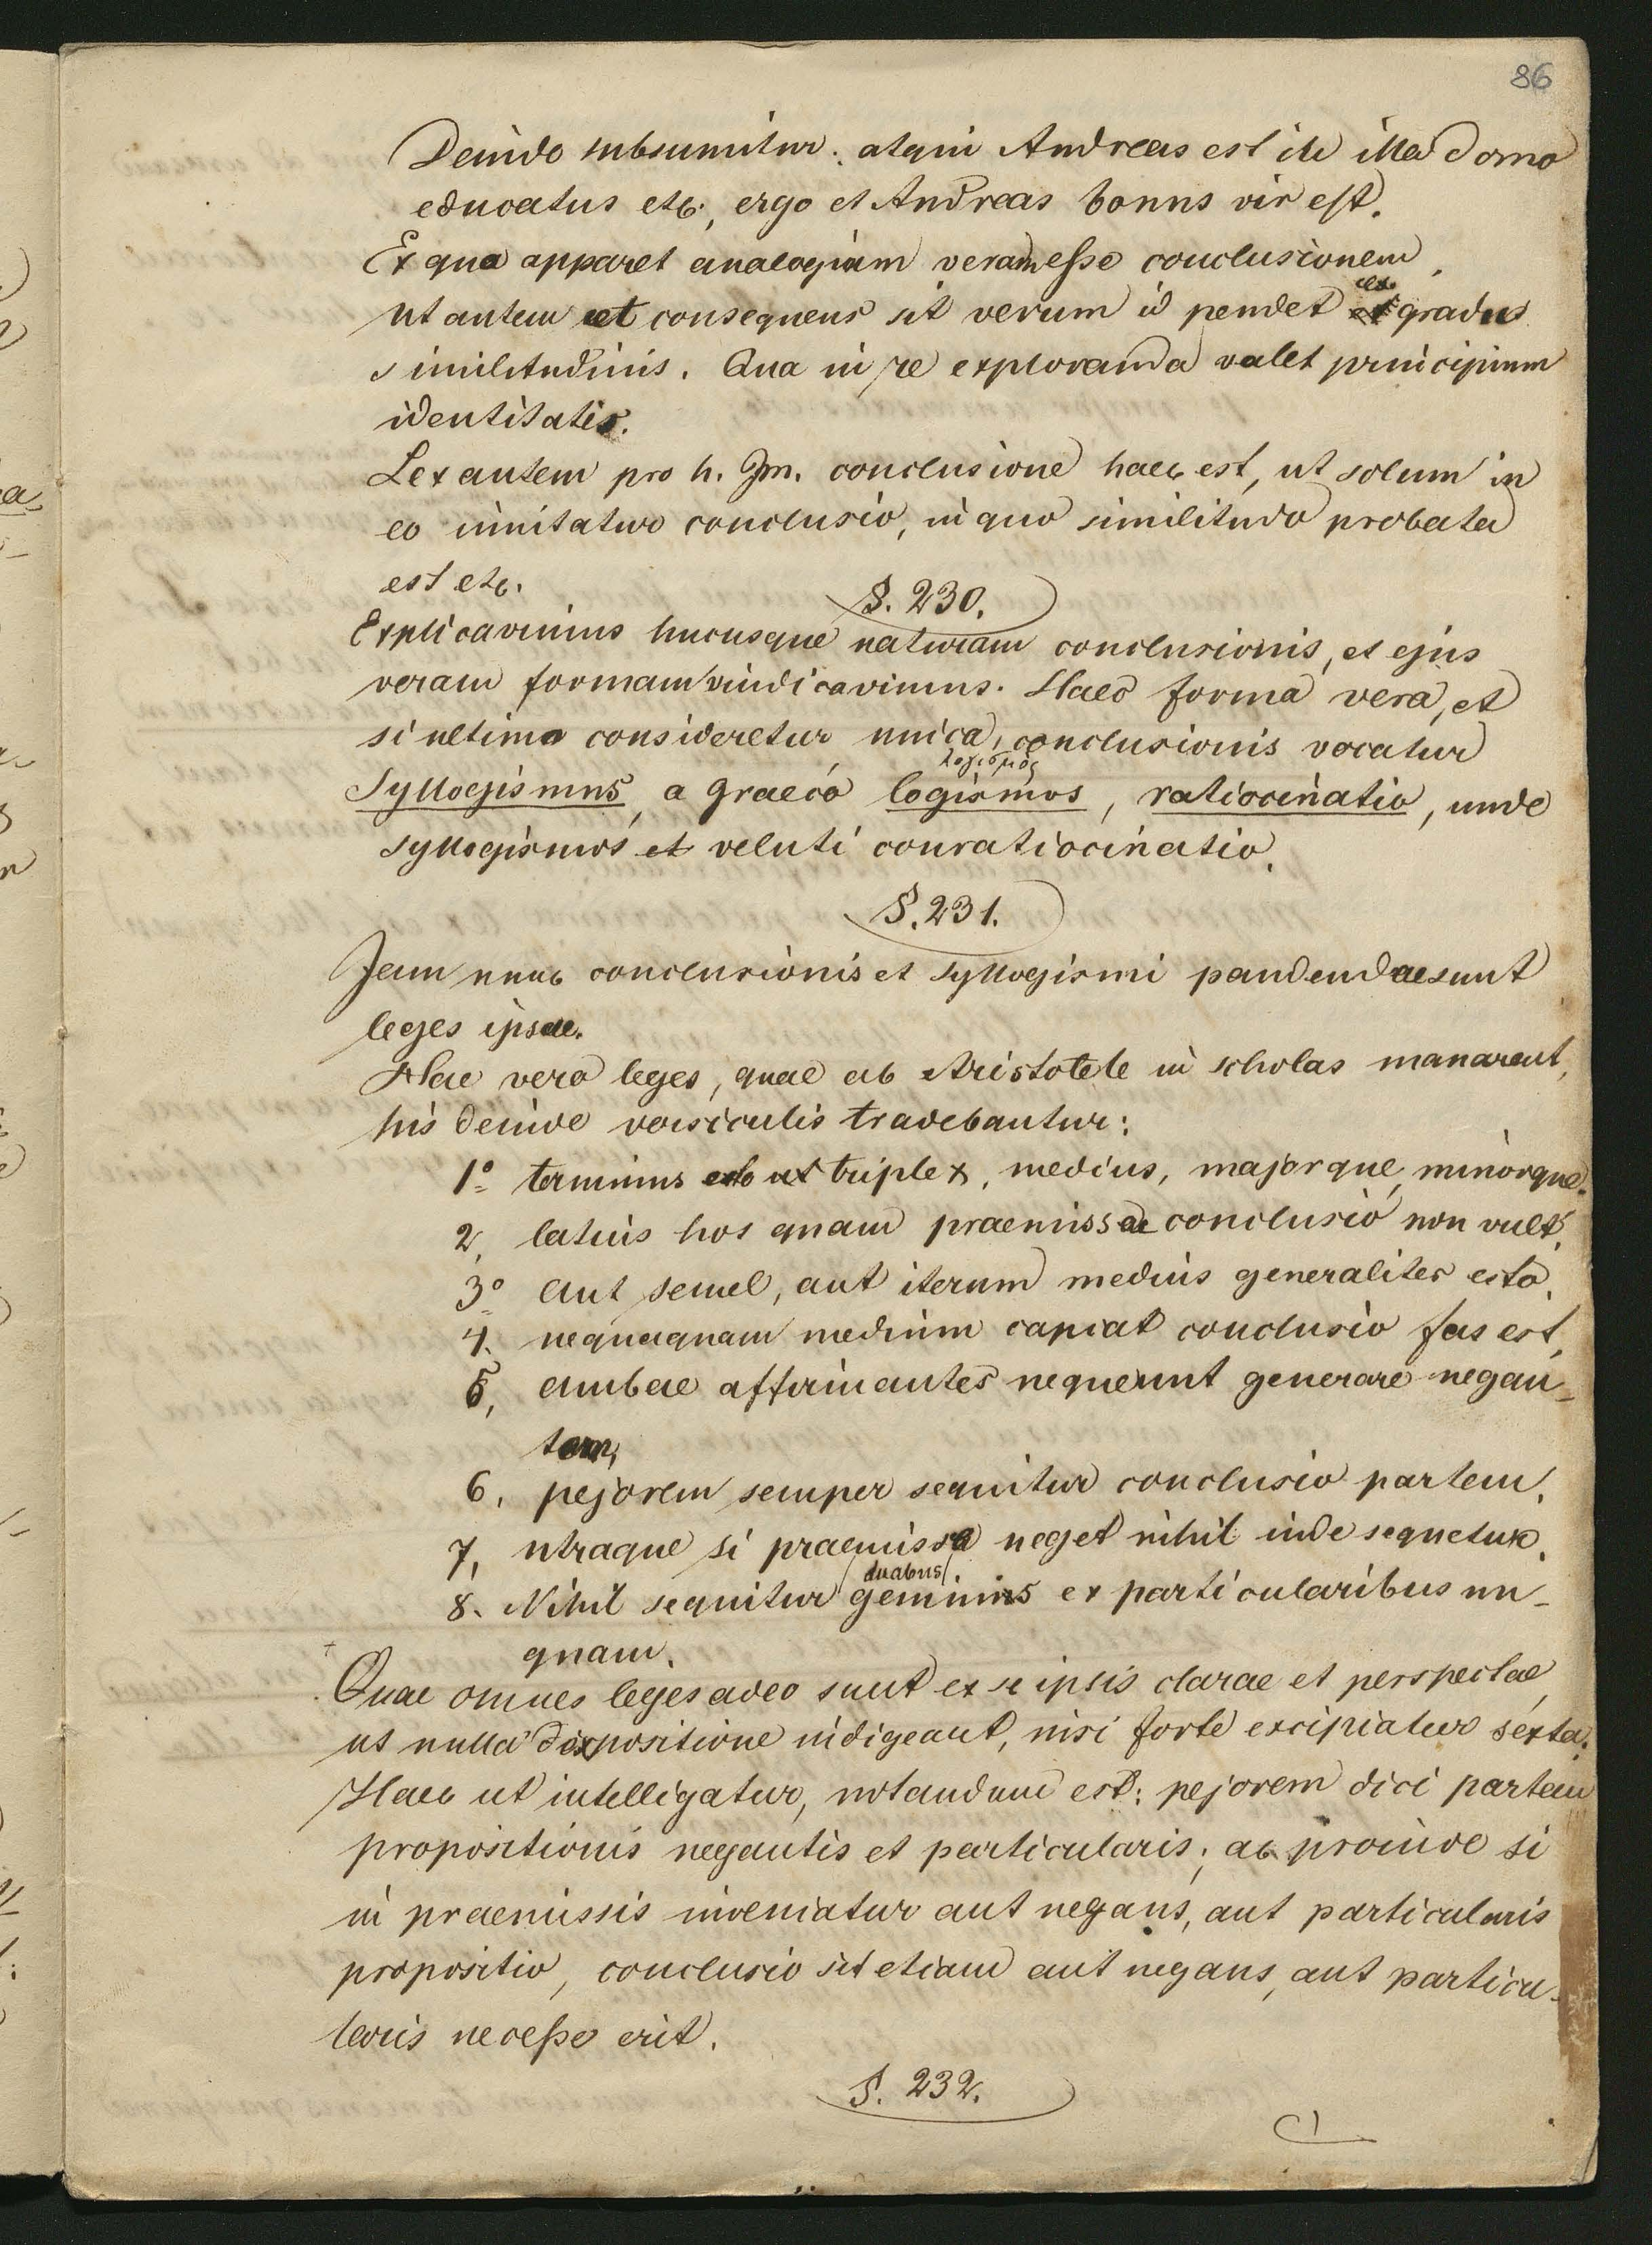 86
Deinde subsumitur: atqui Andreas est in illa domo
educatus etc., ergo et Andreas bonus vir est.
Ex quo apparet analogiam veram esse conclusionem,
ut autem et consequens sit verum id pendet ex gradus
similitudinis. Qua in re exploranda valet principium
identitatis.
Lex autem pro h. gm. conclusione haec est, ut solum in
eo innitatur conclusio, in quo similitudo probata
est etc.
§. 230.
Explicavimus hucusque naturam conclusionis, et ejus
veram formam vindicavimus. Haec forma vera, et
si ultimo consideretur unica, conclusionis vocatur
λογισμός
Syllogismus, a graeco logismos, ratiocinatio, unde
syllogismos et veluti conratiocinatio.
§. 231.
Jam nunc conclusionis et syllogismi pandendae sunt
leges ipsae.
Hae vero leges, quae ab Aristotele in scholas manarunt,
his deinde versiculis tradebantur:
1o terminus esto triplex, medius, majorque, minorque.
2, latius hos quam praemissae conclusio non vult.
3o aut semel, aut iterum medius generaliter esto.
4. nequaquam medium capiat conclusio fas est,
5, ambae affirmantes nequeunt generare negan-
tem,
6, pejorem semper sequitur conclusio partem.
7, utraque si praemissa neget nihil inde sequetur.
duabus
8. Nihil sequitur geminis ex particularibus un-
quam.
Quae omnes leges adeo sunt ex se ipsis clarae et perspectae,
ut nulla expositione indigeant, nisi forte excipiatur sexta.
Haec ut intelligatur, notandum est: pejorem dici partem
propositionis negantis et particularis; ac proinde si
in praemissis inveniatur aut negans, aut particularis
propositio, conclusio sit etiam aut negans, aut particu-
laris necesse erit.
§. 232.